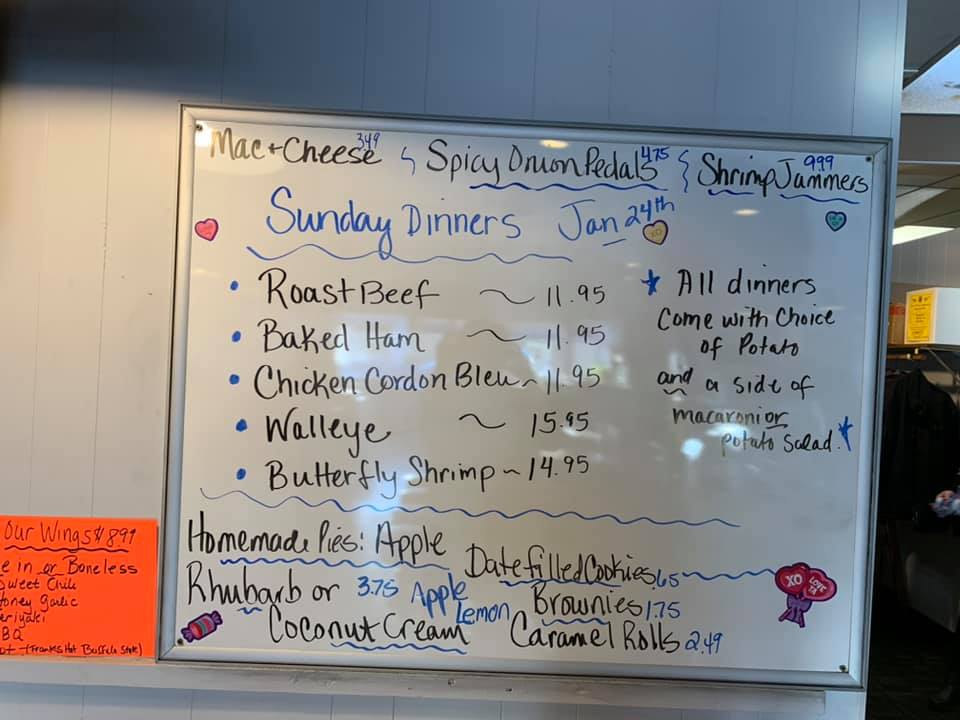 Mac + Cheese 3.49 Spicy Onion Pedals 4.75 Shrimp Jammers 9.99
Sunday Dinners Jan 24th
• Roast Beef ~ 11.95
• Baked Ham ~ 11.95
• Chicken Cordon Bleu ~ 11.95
• Walleye ~ 15.95
• Butterfly Shrimp ~ 14.95
* All dinners
Come with Choice
of Potato
and a side of
macaroni or
potato salad. *
Homemade Pies: Apple
Rhubarb or 3.75 Apple
Lemon
Coconut Cream
Date filled Cookies .65
Brownies 1.75
Caramel Rolls 2.49
XO
LOVE
XO
Our Wings $8.99
e in or Boneless
Sweet Chili
Honey Garlic
eriyaki
BQ
ot - (Franks Hot Buffalo Style)